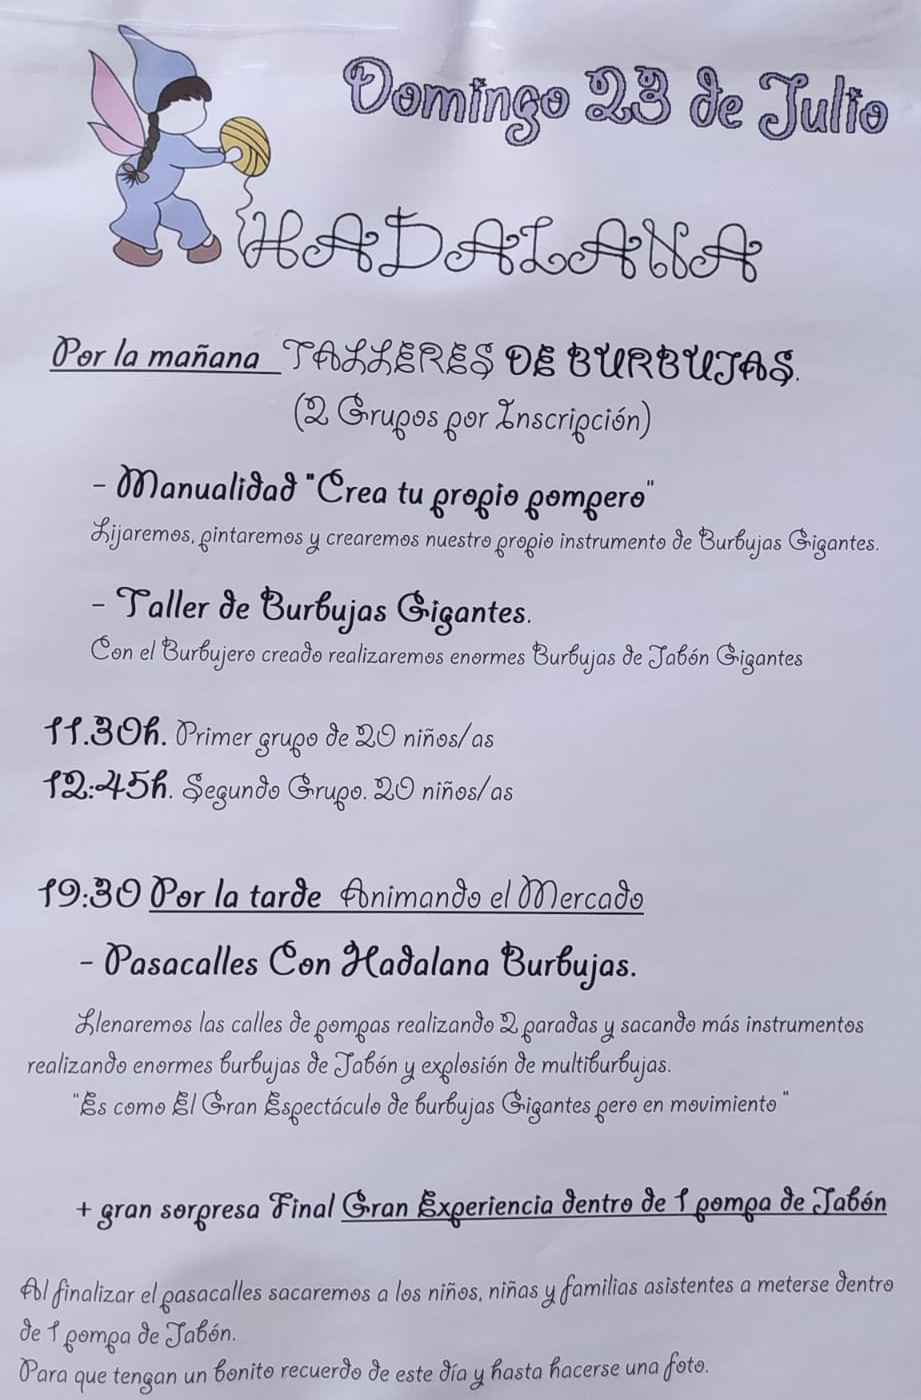 Domingo 23 de Julio
HADALANA
Por la mañana TALLERES DE BURBUJAS.
(2 Grupos por Inscripción)
- Manualidad "Crea tu propio pompero"
Lijaremos, pintaremos y crearemos nuestro propio instrumento de Burbujas Gigantes.
- Taller de Burbujas Gigantes.
Con el Burbujero creado realizaremos enormes Burbujas de Jabón Gigantes
11.30h. Primer grupo de 20 niños/as
12:45h. Segundo Grupo. 20 niños/as
19:30 Por la tarde Animando el Mercado
- Pasacalles Con Hadalana Burbujas.
Llenaremos las calles de pompas realizando 2 paradas y sacando más instrumentos
realizando enormes burbujas de Jabón y explosión de multiburbujas.
"Es como El Gran Espectáculo de burbujas Gigantes pero en movimiento "
+ gran sorpresa Final Gran Experiencia dentro de 1 pompa de Jabón
Al finalizar el pasacalles sacaremos a los niños, niñas y familias asistentes a meterse dentro
de 1 pompa de Jabón.
Para que tengan un bonito recuerdo de este día y hasta hacerse una foto.